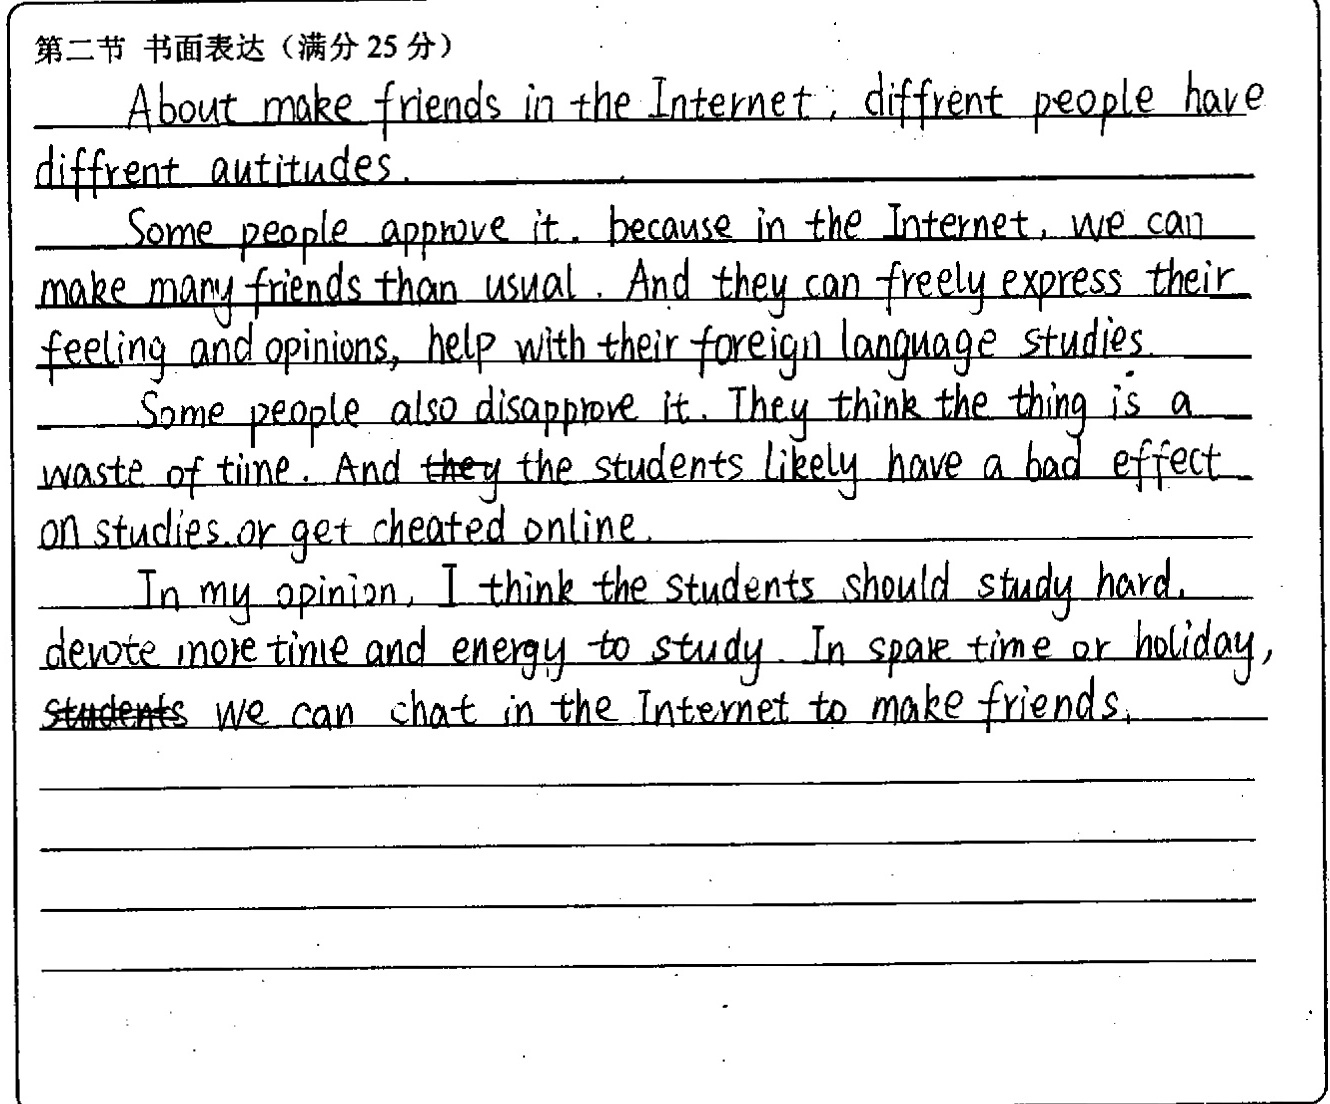 第二节 书面表达（满分 25 分）
About make friends in the Internet, diffrent people have
diffrent autitudes.
Some people approve it. because in the Internet, we can
make many friends than usual. And they can freely express their
feeling and opinions, help with their foreign language studies.
Some people also disapprove it. They think the thing is a
waste of time. And they the students likely have a bad effect
on studies.or get cheated online.
In my opinion, I think the students should study hard.
devote more time and energy to study. In spare time or holiday,
students we can chat in the Internet to make friends.